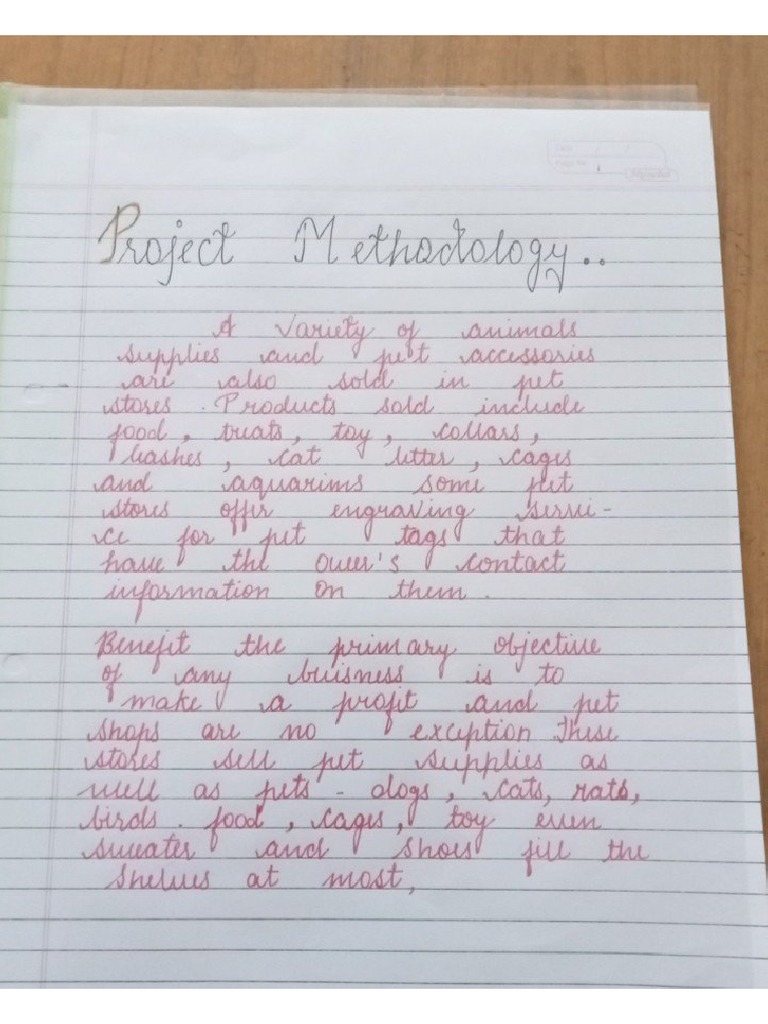 Project Methodology..
A variety of animals
supplies and pet accessories
are also sold in pet
stores. Products sold include
food, treats, toy, collars,
leashes, cat litter, cages
and aquarims some pet
stores offer engraving servi-
ce for pet tags that
have the ower's contact
information on them.
Benefit the primary objective
of any buisness is to
make a profit and pet
shops are no exception These
stores sell pet supplies as
well as pets - dogs, cats, rats,
birds. food, cages, toy even
sweater and shoes fill the
shelves at most,